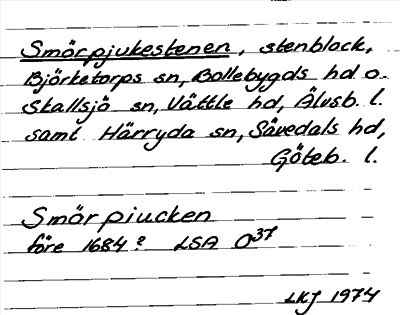 Smörpjukestenen, stenblock,
Björketorps sn, Bollebygds hd o.
Skallsjö sn, Vättle hd, Älvsb. l.
samt Härryda sn, Sävedals hd,
Göteb. l.
Smörpiucken
före 1684? LSA O37
LKJ 1974